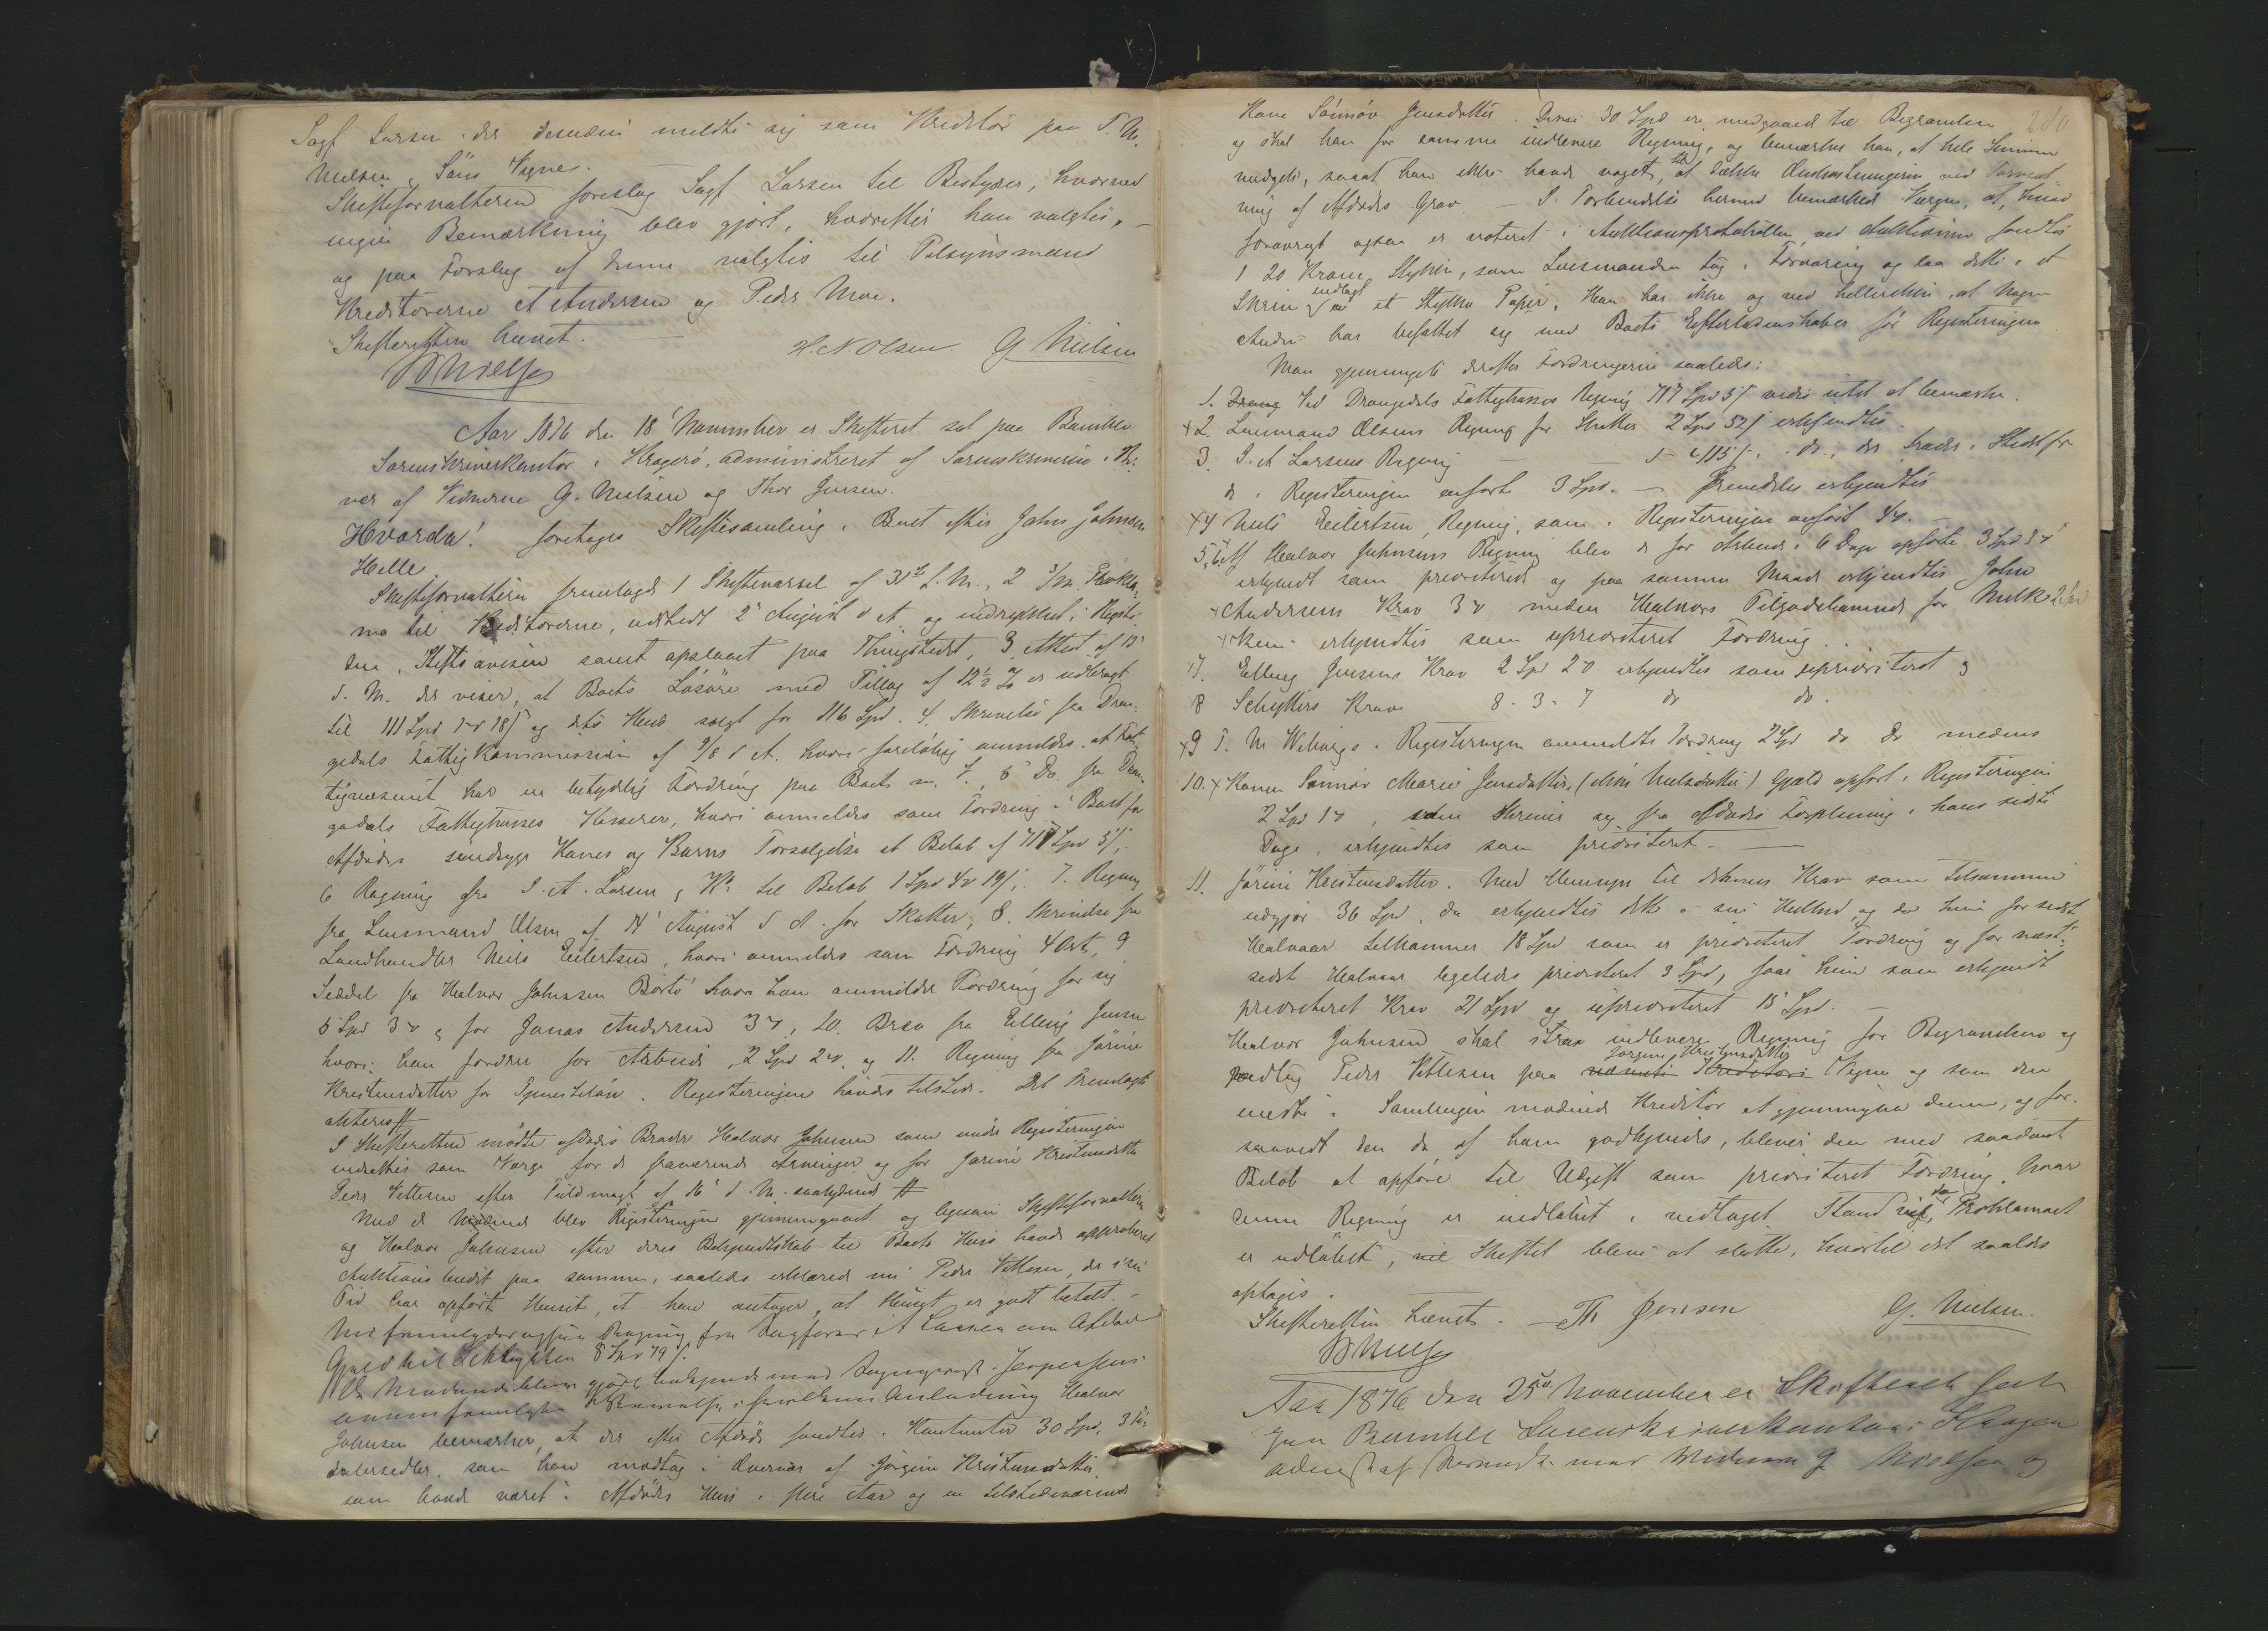 Sagf Larsen der desuden meldte sig som Kreditor paa T. M.
Nielsen & Søns Vegne.
Skifteforvalteren foreslog Sagf Larsen til Bestyrer, hvorved
ingen Bemærkning blev gjort, hvorefter han valgtes, -
og paa Forslag af denne valgtes til Tilsynsmænd
Kreditorerne A Andersen og Peder Moe.
Skifteretten hævet.
H. N. Olsen. G Nielsen
Aar 1876 den 18 November er Skifteret sat paa Bamble
Sorenskriverkontor i Kragerø, administreret af Sorenskriveren i Nær
vær af Vidnerne G. Nielsen og Thor Jensen.
Hvorda! foretoges Skiftesamling i Boet efter John Johnsen
Helle.
Skifteforvalteren fremlagde 1 Skiftevarsel af 31te f. M., 2 3/m Prokla,
ma til Kreditorerne, udstedt 2 August d A og indrykket i Rigsti
den, Stiftsavisen samt opslaaet paa Thingstedet, 3 Attest af 15
d. M. der viser, at Boets Løsøre med Tillæg af 12½ % er udbragt
til 111 Spd 1 18 ß og dets Huus solgt for 116 Spd. 4. Skrivelse fra Dran,
gedals Fattigkommission af 9/8 d A. hvori foreløbig anmeldes at Fat,
tigvæsenet har en betydelig Fordring paa Boet m. V. 5 Do. fra Dran
gedals Fattigkasses Kasserer, hvori anmeldes som Fordring i Boet for
Afdødes sindssyge Kones og Barns Forsørgelse et Beløb af 717 Spd 5 ß,
6 Regning fra I. A. Larsen & Ko. til Beløb 1 Spd 4 19 ß; 7. Regning
fra Lensmand Olsen af 14 August d A. for Skatter, 8. Skrivelse fra
Landhandler Niels Eilertsen, hvori anmeldes som Fordring 4 Ort, 9
Seddel fra Halvor Johnsen Børtø hvori han anmelder Fordring for sig
5 Spd 3 & for Jonas Andersen 3, 10. Brev fra Elling Jensen
hvori han fordrer for Arbeide 2 Spd 2 og 11. Regning fra Jørine
Kristensdatter for Tjenesteløn. Registeringen havdes tilstede. Det Fremlagte
akteres #
I Skifteretten mødte afdødes Broder Halvor Johnsen som under Registeringen
indsattes som Værge for de fraværende Arvinger og for Jørine Kristensdatter
Peder Vettesen efter Fuldmagt af 16 d. M. saalydende #
Med de Mødende blev Registeringen gjennemgaaet og ligesom Skifteforvalteren
og Halvor Johnsen efter deres Bekjendtskab til Boets Huus havde approberet
Auktionsbudet paa samme, saaledes erklærede nu Peder Vettesen, der i sin
Tid har opført Huset, at han antager, at Huset er godt betalt. -
Gjæld til Sellegaten 8 Spd 79 ß.
Johnsen bemærker at der efter Afdøde fandtes i Kontanter 30 Spd, 3 Ti,
dalersedler, som han modtog i Overvær af Jørgine Kristensdatter,
som havde været i Afdødes Huus i flere Aar og en tilstedeværende
280
Kone Sønnøv Jensdatter. Disse 30 Spd er medgaaet til Begravelsen
og skal han for samme indlevere Regning, og bemærker han, at hele Summen
medgik, saaat han ikke havde noget til at dække Omkostningerne ved Forvent
ning af Afdødes Grav. - I Forbindelse hermed bemærkede Værgen, at, hvad
forøvrigt ogsaa er noteret i Auktionsprotokollen ved Auktionen fandtes
1 20 Krone Stykke, som Lensmanden tog i Forvaring og laa dette i et
Skrin indlagt i et Stykke Papir. Han har ikke og ved hellerikke, at Nogen
Anden har befattet sig med Boets Efterladenskaber før Registeringen
Man gjennemgik derefter Fordringerne saaledes:
1. Drang Ved Drangedals Fattigkasses Regning 717 Spd 5 ß vides intet at bemærke.
x2. Lensmand Olsens Regning for Skatter 2 Spd 52 ß erkjendtes.
3. I. A Larsens Regning 1 - 4 115 ß. do., der træder i Stedet for
de i Registeringen anførte 3 Spd. - Fremdeles erkjendtes
x4 Niels Eilertsen Regning, som i Registeringen anført 4.
5,6. Af Halvor Johnsens Regning blev de for Arbeide i 6 Dage opførte 3 Spd 3
erkjendt som prioriterede og paa samme Maade erkjendtes John
x Andersens Krav 3 medens Halvors Tilgodehavende for Melk 2 Spd
x kun erkjendtes som uprioriteret Fordring.
7. Elling Jensens Krav 2 Spd 2 erkjendtes som uprioriteret og
8 Schytters Krav 8 . 3 . 7 do do.
x9 T. M Wiborgs i Registeringen anmeldte Fordring 2 Spd do do medens
10. x Konen Sønnøv Marie Jensdatter, (Nielsdatter) Gjæld opført i Registeringen
2 Spd 1, som skriver sig fra Afdødes Forpleining i hans sidste
Dage, erkjendtes som prioriteret. -
11. Jørine Kristensdatter. Med Hensyn til dennes Krav som tilsammen
udgjør 36 Spd, da erkjendtes dette i sin Helhed, og da hun for sidst
Halvaar tilkommer 18 Spd som er prioriteret Fordring og for næst,
sidst Halvaar ligeledes prioriteret 3 Spd, faar hun som erkjendt
prioriteret Krav 21 Spd og uprioriteret 15 Spd. -
Halvor Johnsen skal strax indlevere Regning for Begravelsen og
vedtog Peder Vettesen paa nævnte Kreditors Jørgine Kristensdatters Vegne og som den
eneste i Samlingen mødende Kreditor at gjennemgaa denne, og for,
saavidt den da af ham godkjendes, bliver den med saadant
Beløb at opføre til Udgift som prioriteret Fordring. Naar
denne Regning er indløbet i vedtaget Stand og da Proklamaet
er udløbet, vil Skiftet blive at slutte, hvortil det saaledes
optages.
Skifteretten hævet. - Th Jensen G. Nielsen.
Aar 1876 den 25de November er Skifteret sat
paa Bamble Sorenskriverkontor i Kragerø
administ. af Sorenskr. med Vidnerne G Nielsen og